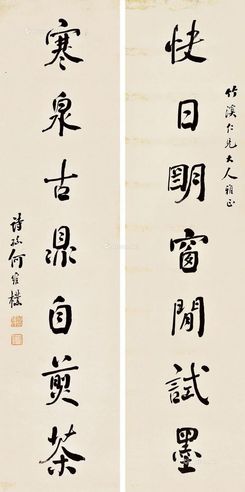 竹溪仁兄大人雅正
快日明窗閒試墨
寒泉古鼎自煎茶
詩孫何維樸